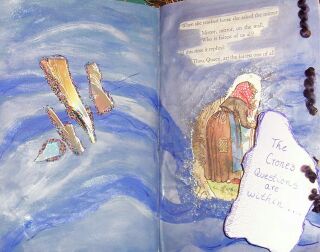 When she reached home she asked the mirror
Mirror, mirror, on the wall,
Who is fairest of us all?
this time it replied
Thou, Queen, art the fairest one of all
The
Crone's
Questions
are
within...